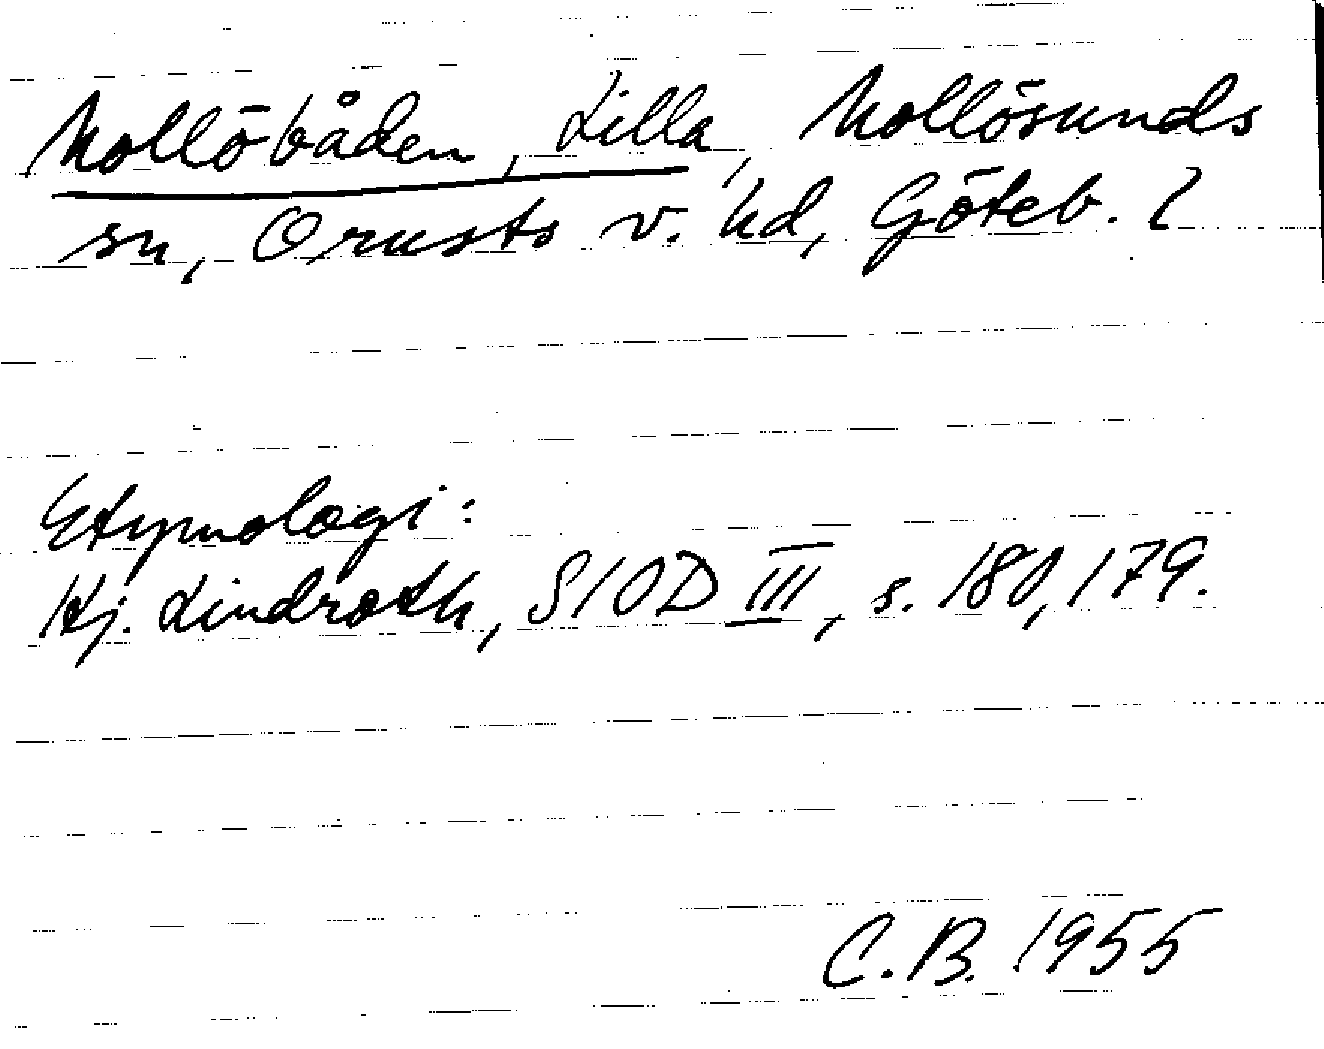 Mollöbåden, Lilla, Mollösunds
sn, Orusts v. hd, Göteb. l
Etymologi:
Hj. Lindroth, SIOD III, s. 180, 179.
C.B. 1955